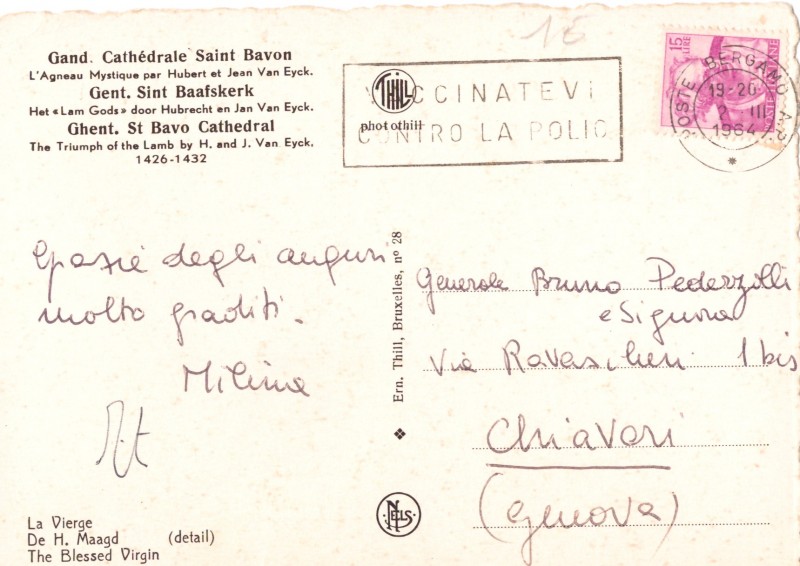 Gand. Cathédrale Saint Bavon
L'Agneau Mystique par Hubert et Jean Van Eyck.
Gent. Sint Baafskerk
Het «Lam Gods» door Hubrecht en Jan Van Eyck.
Ghent. St Bavo Cathedral
The Triumph of the Lamb by H. and J. Van Eyck.
1426-1432
THILL
photothill
CCINATEVI
CONTRO LA POLIO
15
LIRE
POSTE BERGAMO A.P.
19-20
2 III
1964
Grazie degli auguri
molto graditi.
Milina
Ern. Thill, Bruxelles, nº 28
Generale Bruno Pederzolli
e Signora
Via Ravaschieri 1 bis
Chiavari
(Genova)
NELS
La Vierge
De H. Maagd (detail)
The Blessed Virgin